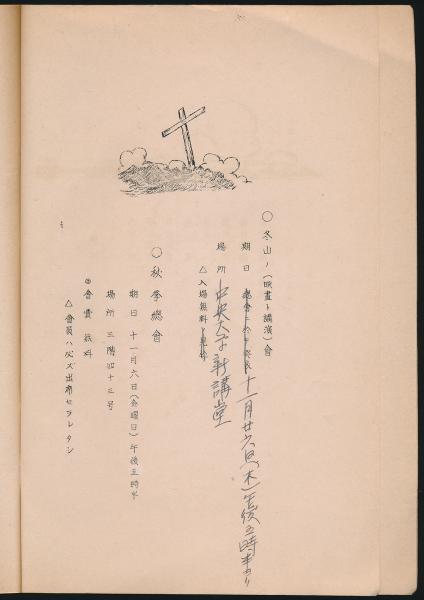 ○ 冬山ノ(映畫ト講演)會
期日 十一月廿六日(木)午後五時半ヨリ
場所 中央大学新講堂
△入場無料
○ 秋季總會
期日 十一月六日(金曜日)午後五時半
場所 三階四十三号
會費 無料
△會員ハ必ズ出席セラレタシ